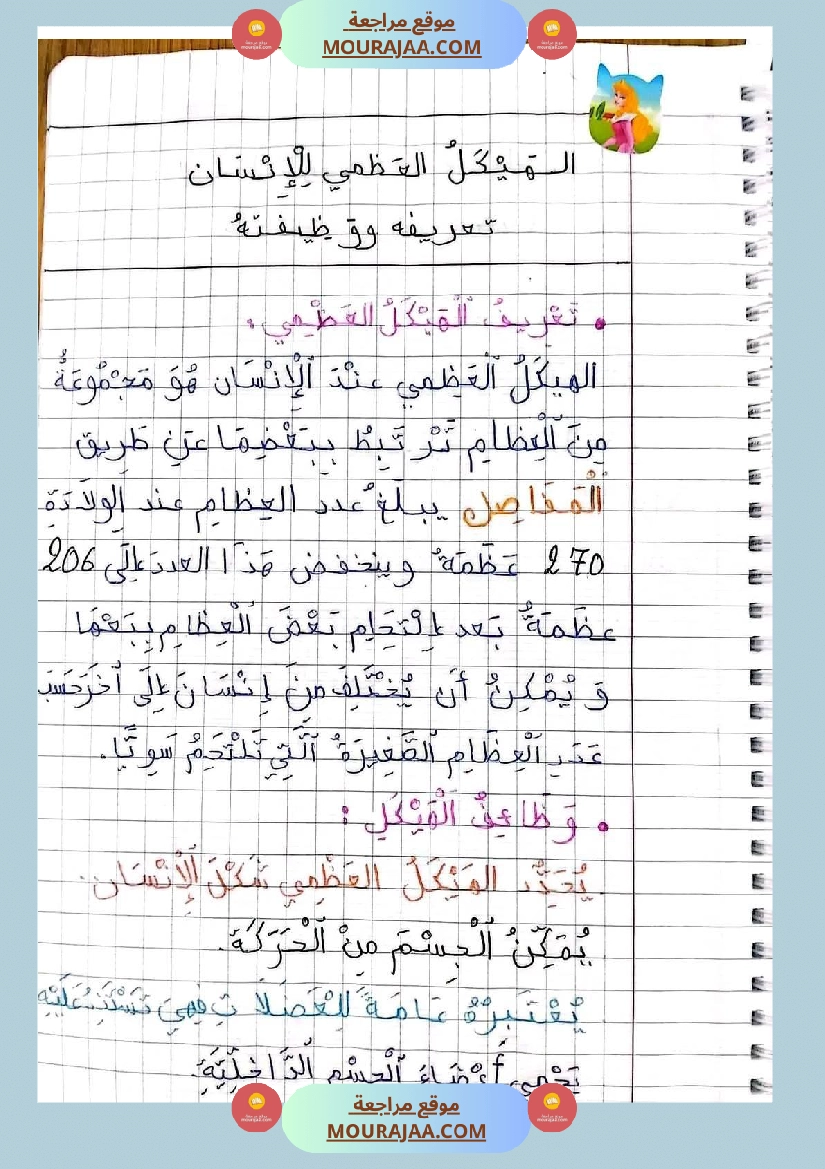 موقع مراجعة
MOURAJAA.COM
الـهَيْكَلُ العَظمي لِلْإِنْسَان
تعريفه ووظيفتهُ
• تَعْرِيفُ الْهَيْكَلُ العَظْمِي :
الهيكَلُ الْعَظِمي عنْدَ الْإِنْسَان هُوَ مَجْمُوعَةُ
مِنَ الْعِظامِ تَرْتَبِطُ بِبَعْضِهَا عَنِ طَرِيق
الْمَفَاصِل يبلَغ عدد العِظامِ عند الِولَادَةِ
270 عَظَمَةٌ وينخفض هَذا العدد إلَى 206
عظَمَةٌ بَعد اِلْتِحَامِ بَعْضَ الْعِظامِ بِبَعْهَا
وَ يُمْكِنُ أَن يُخْتَلِفَ مِنَ إِنْسَانَ إلَى آخَرَ حَسَبَ
عَدَدِ الْعِظَامِ الصَّغِيرَةُ الَّتِي تَلْتَحِمُ سَوِيًّا.
• وَظَائِفُ الْهَيْكَلِ :
يُحَدِّد الهَيْكَلُ العَظْمِي شَكْلَ الْإِنْسَان.
يُمَكِّنُ الْجِسْمَ مِنْ الْحَرَكَةِ.
يُعْتَبَرُ دعَامَةً لِلْعَضَلَاتِ فهِيَ تَسْتَنِدُ عَلَيْهِ
يَحْمِي أَعْضَاءَ الْجِسْمِ الدَّاخِلِيَّةِ.
موقع مراجعة
MOURAJAA.COM